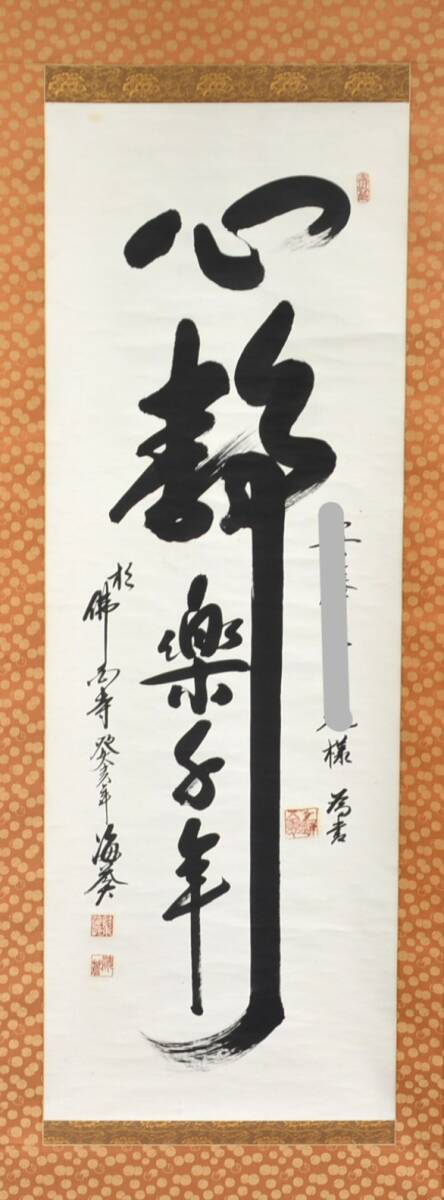 心靜樂千年
様 為書
於
佛国寺 癸亥年 海葵